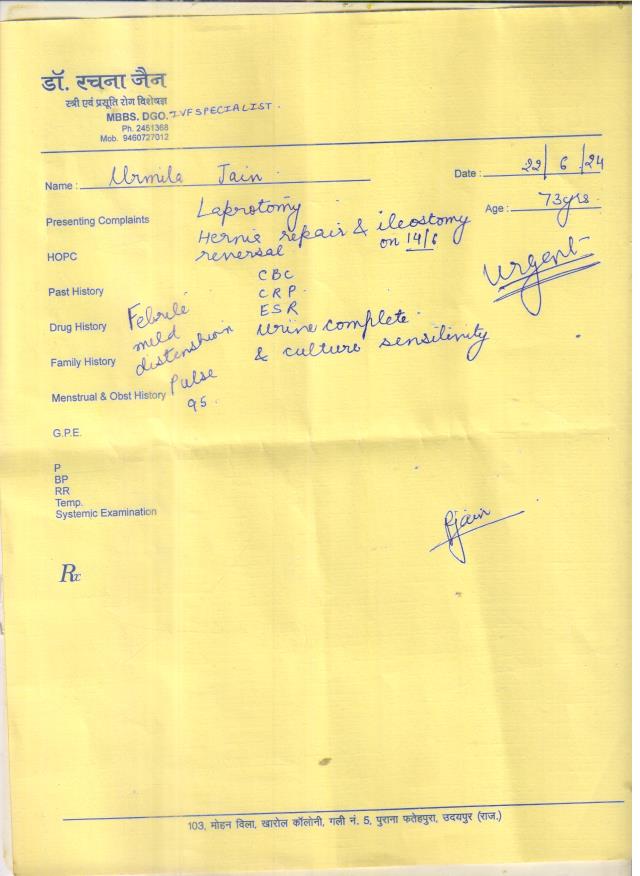 डॉ. रचना जैन
स्त्री एवं प्रसूति रोग विशेषज्ञ
MBBS. DGO. IVF SPECIALIST.
Ph. 2451368
Mob. 9460727012
Name : Urmila Jain Date : 22/6/24
Age : 73yrs.
Presenting Complaints Laprotomy
Hernie repair & ileostomy
HOPC reversal on 14/6
Urgent
CBC
Past History CRP.
ESR
Drug History Febrile Urine complete.
mild & culture sensitinity
Family History distenshion
Menstrual & Obst History Pulse
95.
G.P.E.
P
BP
RR
Temp.
Systemic Examination
Rjain
Rx
103, मोहन विला, खारोल कॉलोनी, गली नं. 5, पुराना फतेहपुरा, उदयपुर (राज.)